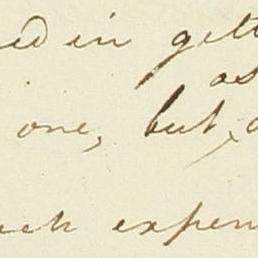 ed in gett
as
one, but, a
uch expen